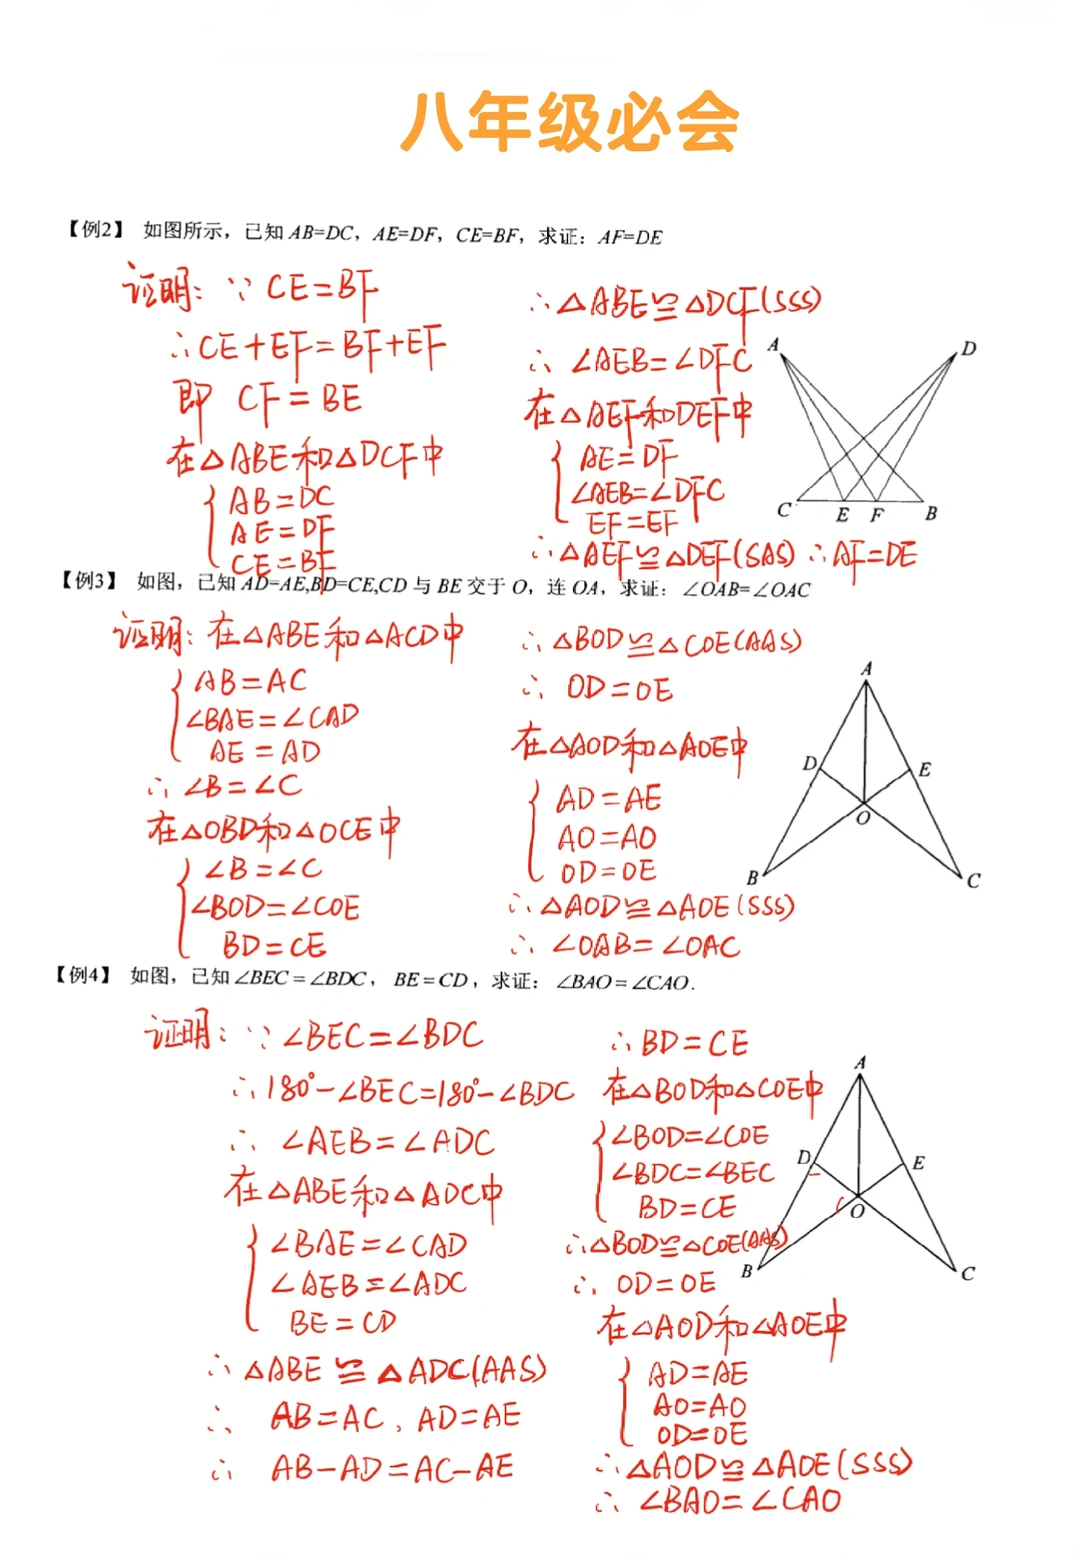 八年级必会
【例2】 如图所示，已知 AB=DC，AE=DF，CE=BF，求证：AF=DE
证明：∵ CE=BF
∴CE+EF=BF+EF
即 CF=BE
在△ABE和△DCF中
AB=DC
AE=DF
CE=BF
∴△ABE≌△DCF(SSS)
∴ ∠AEB=∠DFC
在△AEF和DEF中
AE=DF
∠AEB=∠DFC
EF=EF
∴△AEF≌△DEF(SAS) ∴AF=DE
A
D
C
E
F
B
【例3】 如图，已知 AD=AE,BD=CE,CD 与 BE 交于 O，连 OA，求证：∠OAB=∠OAC
证明：在△ABE和△ACD中
AB=AC
∠BAE=∠CAD
AE=AD
∴ ∠B=∠C
在△OBD和△OCE中
∠B=∠C
∠BOD=∠COE
BD=CE
∴ △BOD≌△COE(AAS)
∴ OD=OE
在△AOD和△AOE中
AD=AE
AO=AO
OD=OE
∴ △AOD≌△AOE(SSS)
∴ ∠OAB=∠OAC
A
D
E
O
B
C
【例4】 如图，已知∠BEC=∠BDC， BE=CD，求证：∠BAO=∠CAO.
证明：∵ ∠BEC=∠BDC
∴180°-∠BEC=180°-∠BDC
∴ ∠AEB=∠ADC
在△ABE和△ADC中
∠BAE=∠CAD
∠AEB=∠ADC
BE=CD
∴ △ABE≌△ADC(AAS)
∴ AB=AC，AD=AE
∴ AB-AD=AC-AE
∴BD=CE
在△BOD和△COE中
∠BOD=∠COE
∠BDC=∠BEC
BD=CE
∴△BOD≌△COE(AAS)
∴ OD=OE
在△AOD和△AOE中
AD=AE
AO=AO
OD=OE
∴△AOD≌△AOE(SSS)
∴ ∠BAO=∠CAO
A
D
E
O
B
C